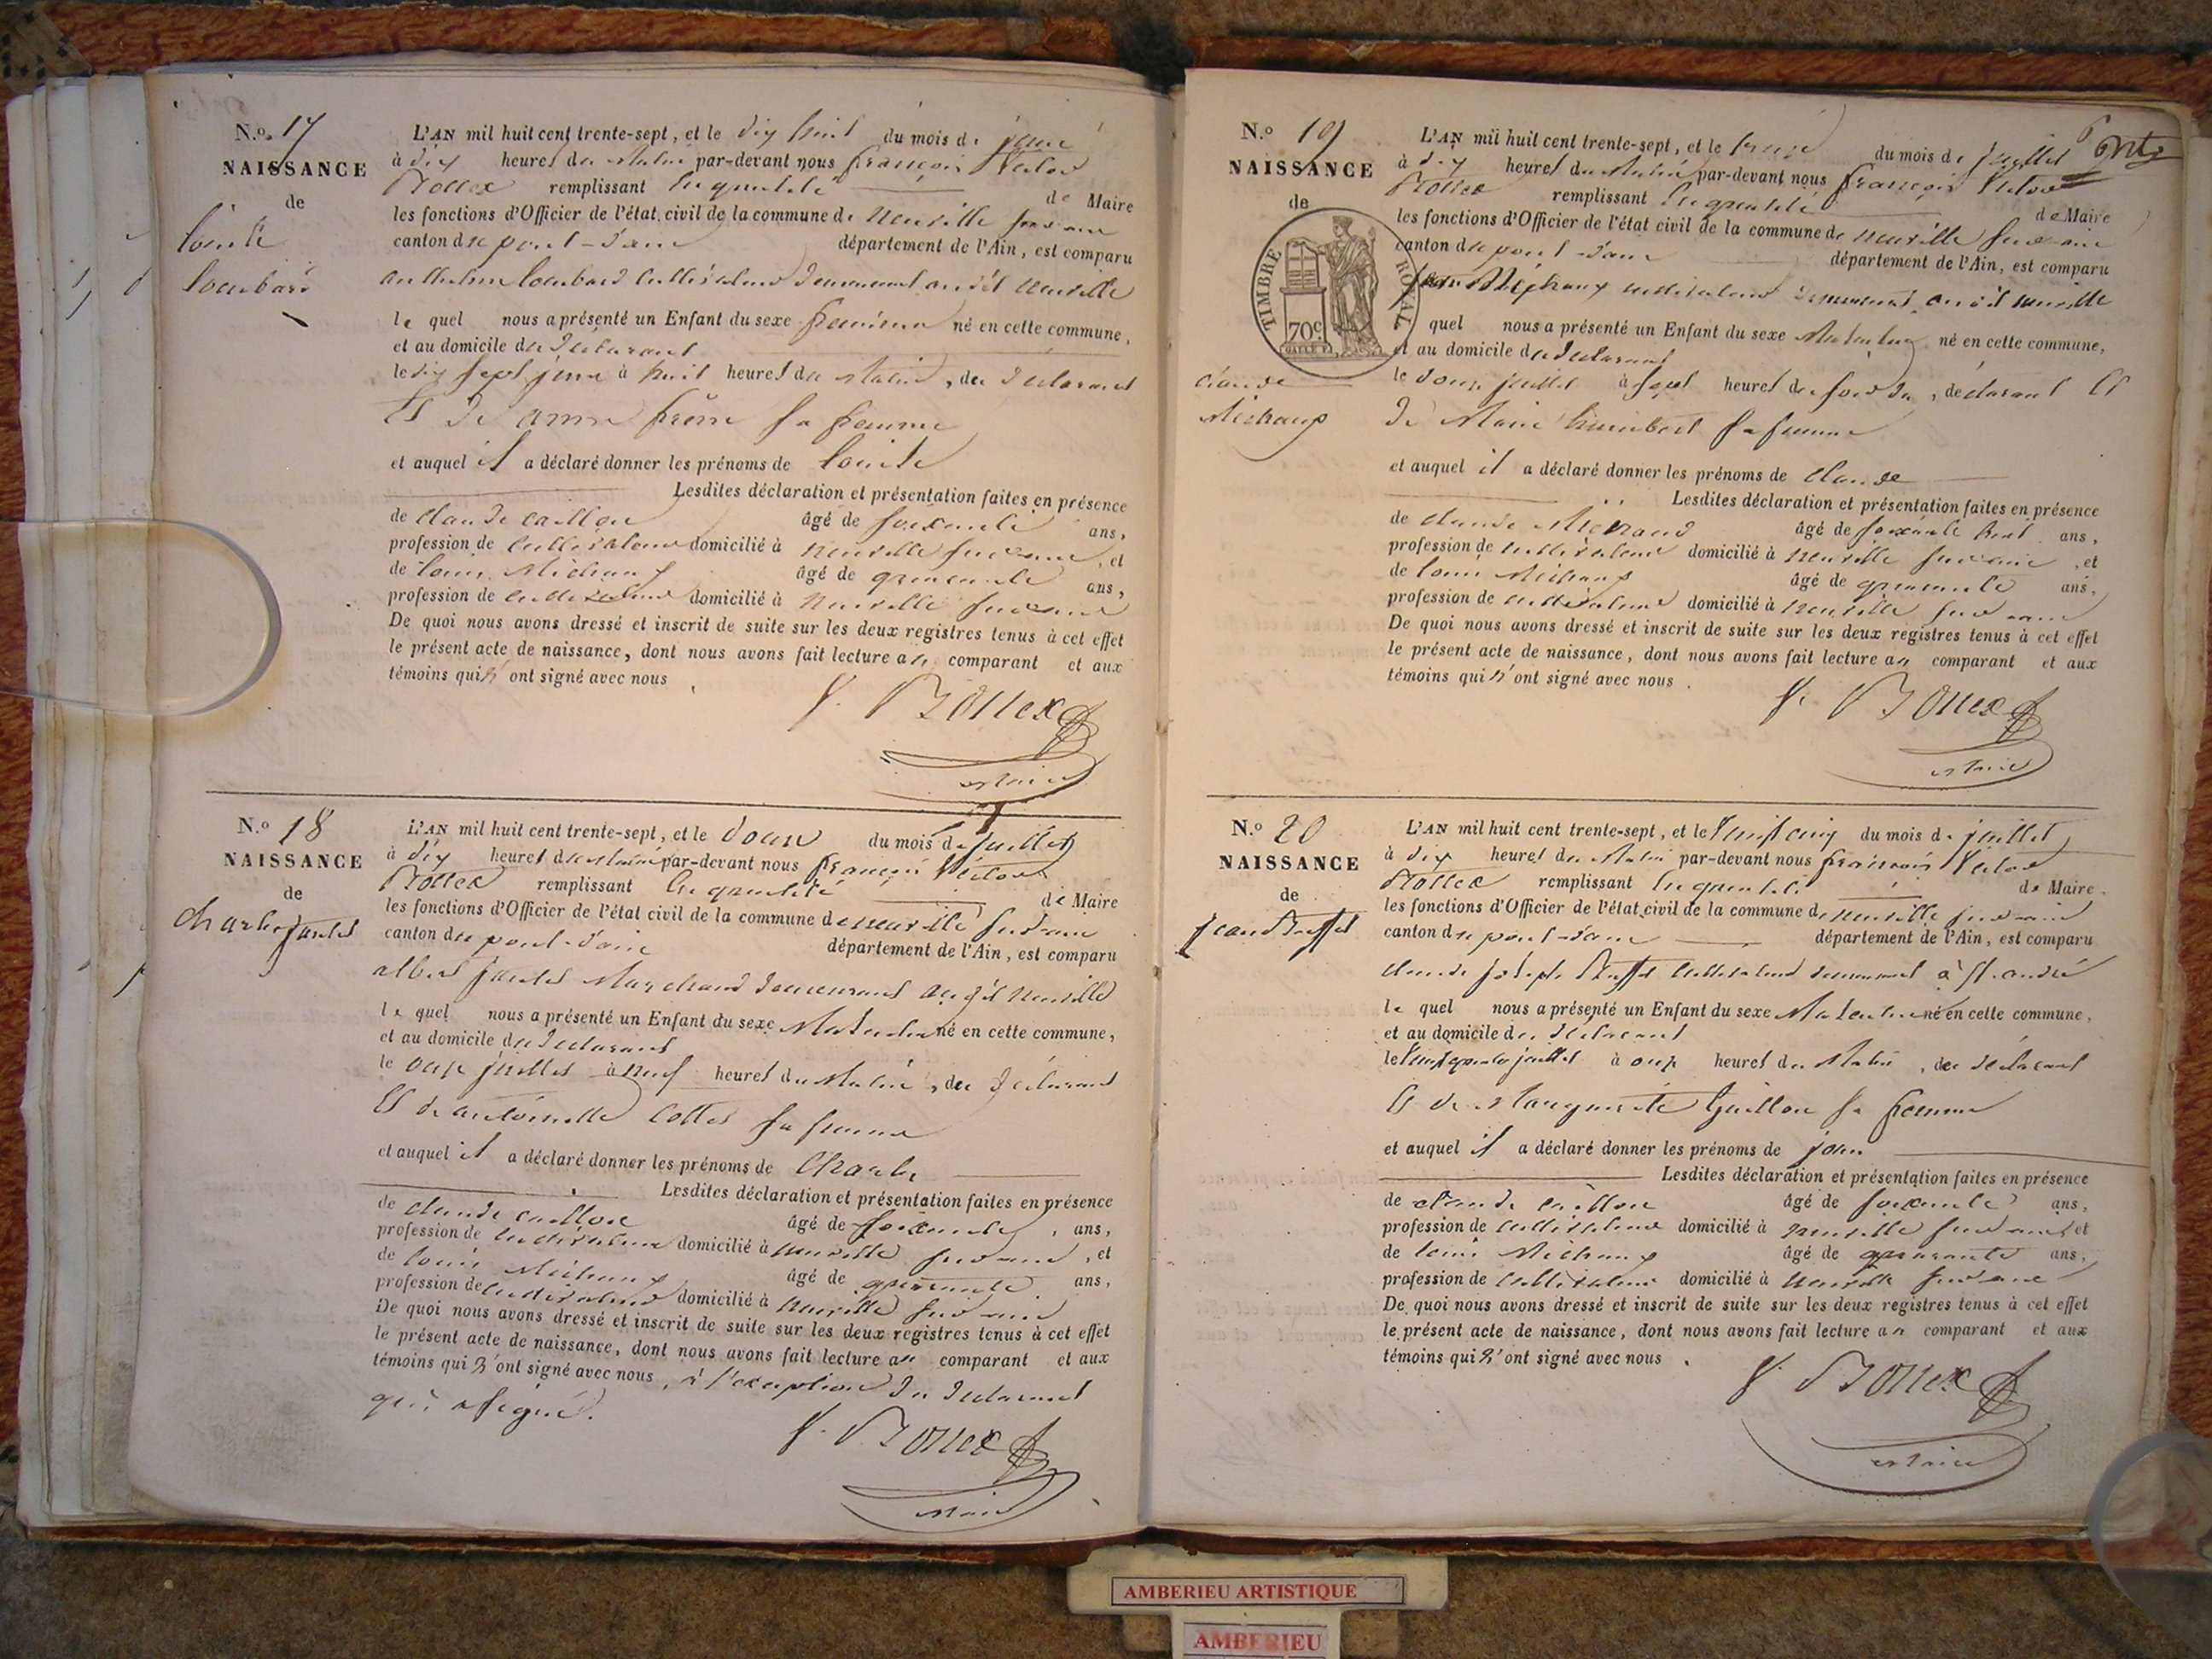 N.o 17
NAISSANCE
de
Louise
Lombard
L'AN mil huit cent trente-sept, et le dix huit du mois de juin
à dix heures du matin par-devant nous françois Victor
Bollex remplissant en qualité de Maire
les fonctions d'Officier de l'état civil de la commune de neuville sur ain
canton de pont-d'ain département de l'Ain, est comparu
anthelme lombard cultivateur demeurant au dit neuville
le quel nous a présenté un Enfant du sexe feminin né en cette commune,
et au domicile du declarant
le dix sept juin à huit heures du matin, du declarant
Et de anne frère sa femme
et auquel il a déclaré donner les prénoms de louise
Lesdites déclaration et présentation faites en présence
de claude caillon âgé de soixante ans,
profession de cultivateur domicilié à neuville sur ain, et
de louis Michaux âgé de quarante ans,
profession de cultivateur domicilié à neuville sur ain
De quoi nous avons dressé et inscrit de suite sur les deux registres tenus à cet effet
le présent acte de naissance, dont nous avons fait lecture au comparant et aux
témoins qui n'ont signé avec nous.
maire
N.o 18
NAISSANCE
de
Charles
L'AN mil huit cent trente-sept, et le douze du mois de juillet
à dix heures du matin par-devant nous françois Victor
Bollex remplissant en qualité de Maire
les fonctions d'Officier de l'état civil de la commune de neuville sur ain
canton de pont-d'ain département de l'Ain, est comparu
albert marchand demeurant au dit neuville
le quel nous a présenté un Enfant du sexe Masculin né en cette commune,
et au domicile du declarant
le onze juillet à neuf heures du matin, du declarant
Et de antoinette sa femme
et auquel il a déclaré donner les prénoms de Charles
Lesdites déclaration et présentation faites en présence
de claude caillon âgé de soixante ans,
profession de cultivateur domicilié à neuville sur ain, et
de louis Michaux âgé de quarante ans,
profession de cultivateur domicilié à neuville sur ain
De quoi nous avons dressé et inscrit de suite sur les deux registres tenus à cet effet
le présent acte de naissance, dont nous avons fait lecture au comparant et aux
témoins qui n'ont signé avec nous, à l'exception du declarant
qui a signé.
maire
N.o 19
NAISSANCE
de
TIMBRE ROYAL
70c
claude
Michaux
L'AN mil huit cent trente-sept, et le treize du mois de juillet
à dix heures du matin par-devant nous françois Victor
Bollex remplissant en qualité de Maire
les fonctions d'Officier de l'état civil de la commune de neuville sur ain
canton de pont-d'ain département de l'Ain, est comparu
Michaux cultivateur demeurant au dit neuville
quel nous a présenté un Enfant du sexe Masculin né en cette commune,
et au domicile du declarant
le douze juillet à sept heures du soir du, declarant Et
de Marie humbert sa femme
et auquel il a déclaré donner les prénoms de claude
Lesdites déclaration et présentation faites en présence
de claude Michaud âgé de soixante huit ans,
profession de cultivateur domicilié à neuville sur ain, et
de louis Michaux âgé de quarante ans,
profession de cultivateur domicilié à neuville sur ain
De quoi nous avons dressé et inscrit de suite sur les deux registres tenus à cet effet
le présent acte de naissance, dont nous avons fait lecture au comparant et aux
témoins qui n'ont signé avec nous.
maire
N.o 20
NAISSANCE
de
jean
L'AN mil huit cent trente-sept, et le vingt cinq du mois de juillet
à dix heures du matin par-devant nous françois Victor
Bollex remplissant en qualité de Maire
les fonctions d'Officier de l'état civil de la commune de neuville sur ain
canton de pont-d'ain département de l'Ain, est comparu
claude joseph cultivateur demeurant à St. andré
le quel nous a présenté un Enfant du sexe Masculin né en cette commune,
et au domicile du declarant
le juillet à onze heures du matin, du declarant
Et de Marguerite Guillon sa femme
et auquel il a déclaré donner les prénoms de jean
Lesdites déclaration et présentation faites en présence
de claude caillon âgé de soixante ans,
profession de cultivateur domicilié à neuville sur ain et
de louis Michaux âgé de quarante ans,
profession de cultivateur domicilié à neuville sur ain
De quoi nous avons dressé et inscrit de suite sur les deux registres tenus à cet effet
le présent acte de naissance, dont nous avons fait lecture au comparant et aux
témoins qui n'ont signé avec nous.
maire
AMBERIEU ARTISTIQUE
AMBERIEU